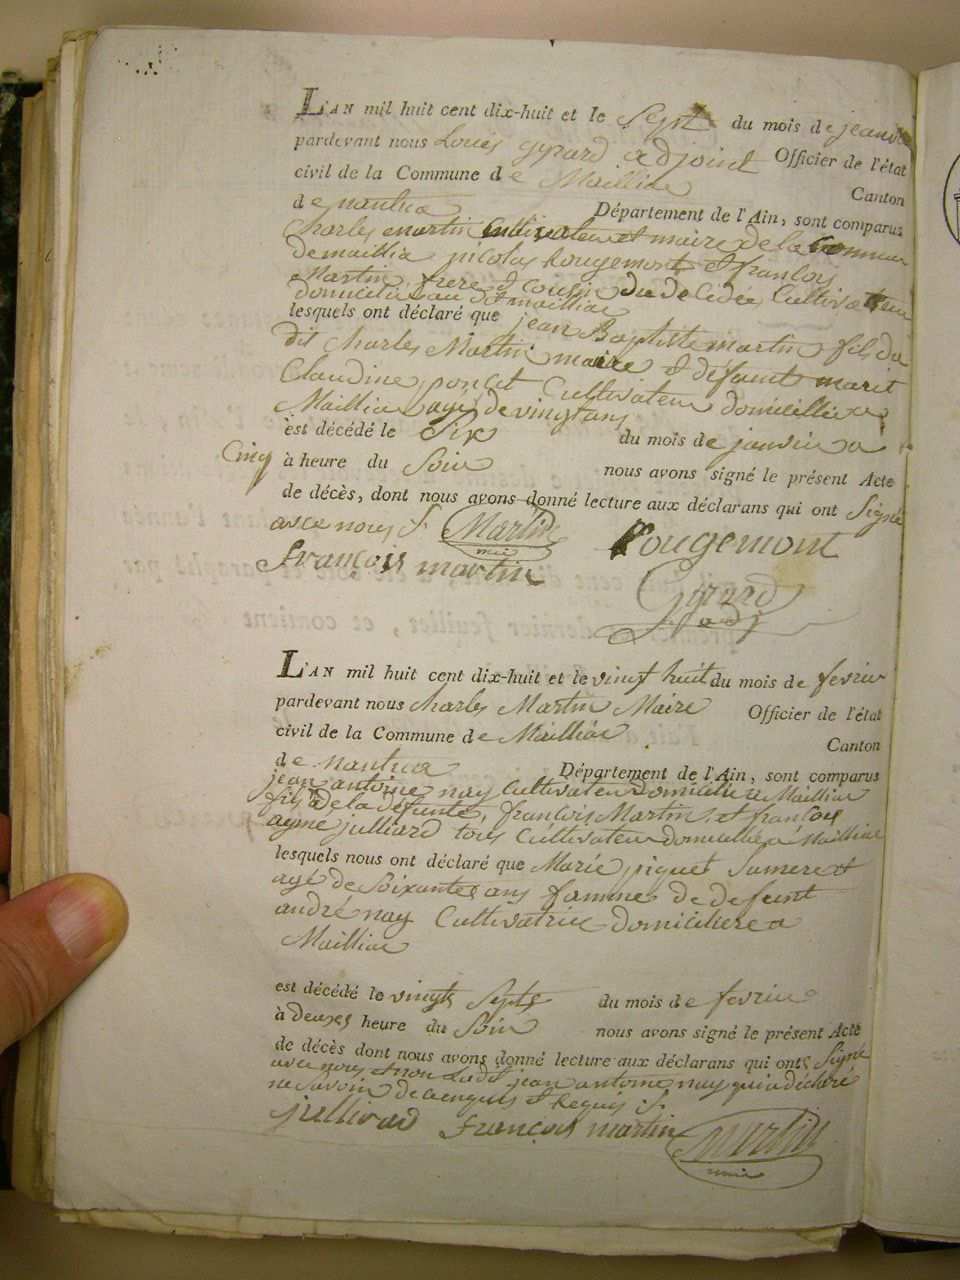 L'AN mil huit cent dix-huit et le Sept du mois de janvie
pardevant nous Louis gyrard adjoint Officier de l'état
civil de la Commune de Mailliac Canton
de nantua Département de l'Ain, sont comparus
Charles martin Cultivateur et maire de la Commune
de maillia nicolas Rougemont et françois
Martin frere et Cousin du decédé Cultivateur
domiciliés au dt mailliac
lesquels ont déclaré que jean Baptiste martin fils du
dit Charles Martin maire et défunte marie
Claudine poncet Cultivateur domicillié a
Maillia agé de vingt ans
est décédé le Six du mois de janvier a
Cinq à heure du Soir nous avons signé le présent Acte
de décès, dont nous avons donné lecture aux déclarans qui ont Signé
avec nous Martin Rougemont
mre
françois martin
Girard
adj
L'AN mil huit cent dix-huit et le vingt huit du mois de fevrier
pardevant nous Charles Martin Maire Officier de l'état
civil de la Commune de Mailliac Canton
de nantua Département de l'Ain, sont comparus
jean antoine nay Cultivateur domicilié a Mailliac
fils de la defunte, françois Martin, et françois
ayme julliard tous Cultivateur domicillié a Mailliac
lesquels nous ont déclaré que Marie piquet
agé de Soixante ans famme de defeint
andré nay Cultivatrice domiciliere a
Mailliac
est décédé le vingt Septs du mois de fevrier
à deuxes heure du Soir nous avons signé le présent Acte
de décès dont nous avons donné lecture aux déclarans qui onts Signé
avec nous et non Ledit jean antoine nay qui a déclaré
ne Savoir de aenquis et Requis
julliard françois martin Martin
mre